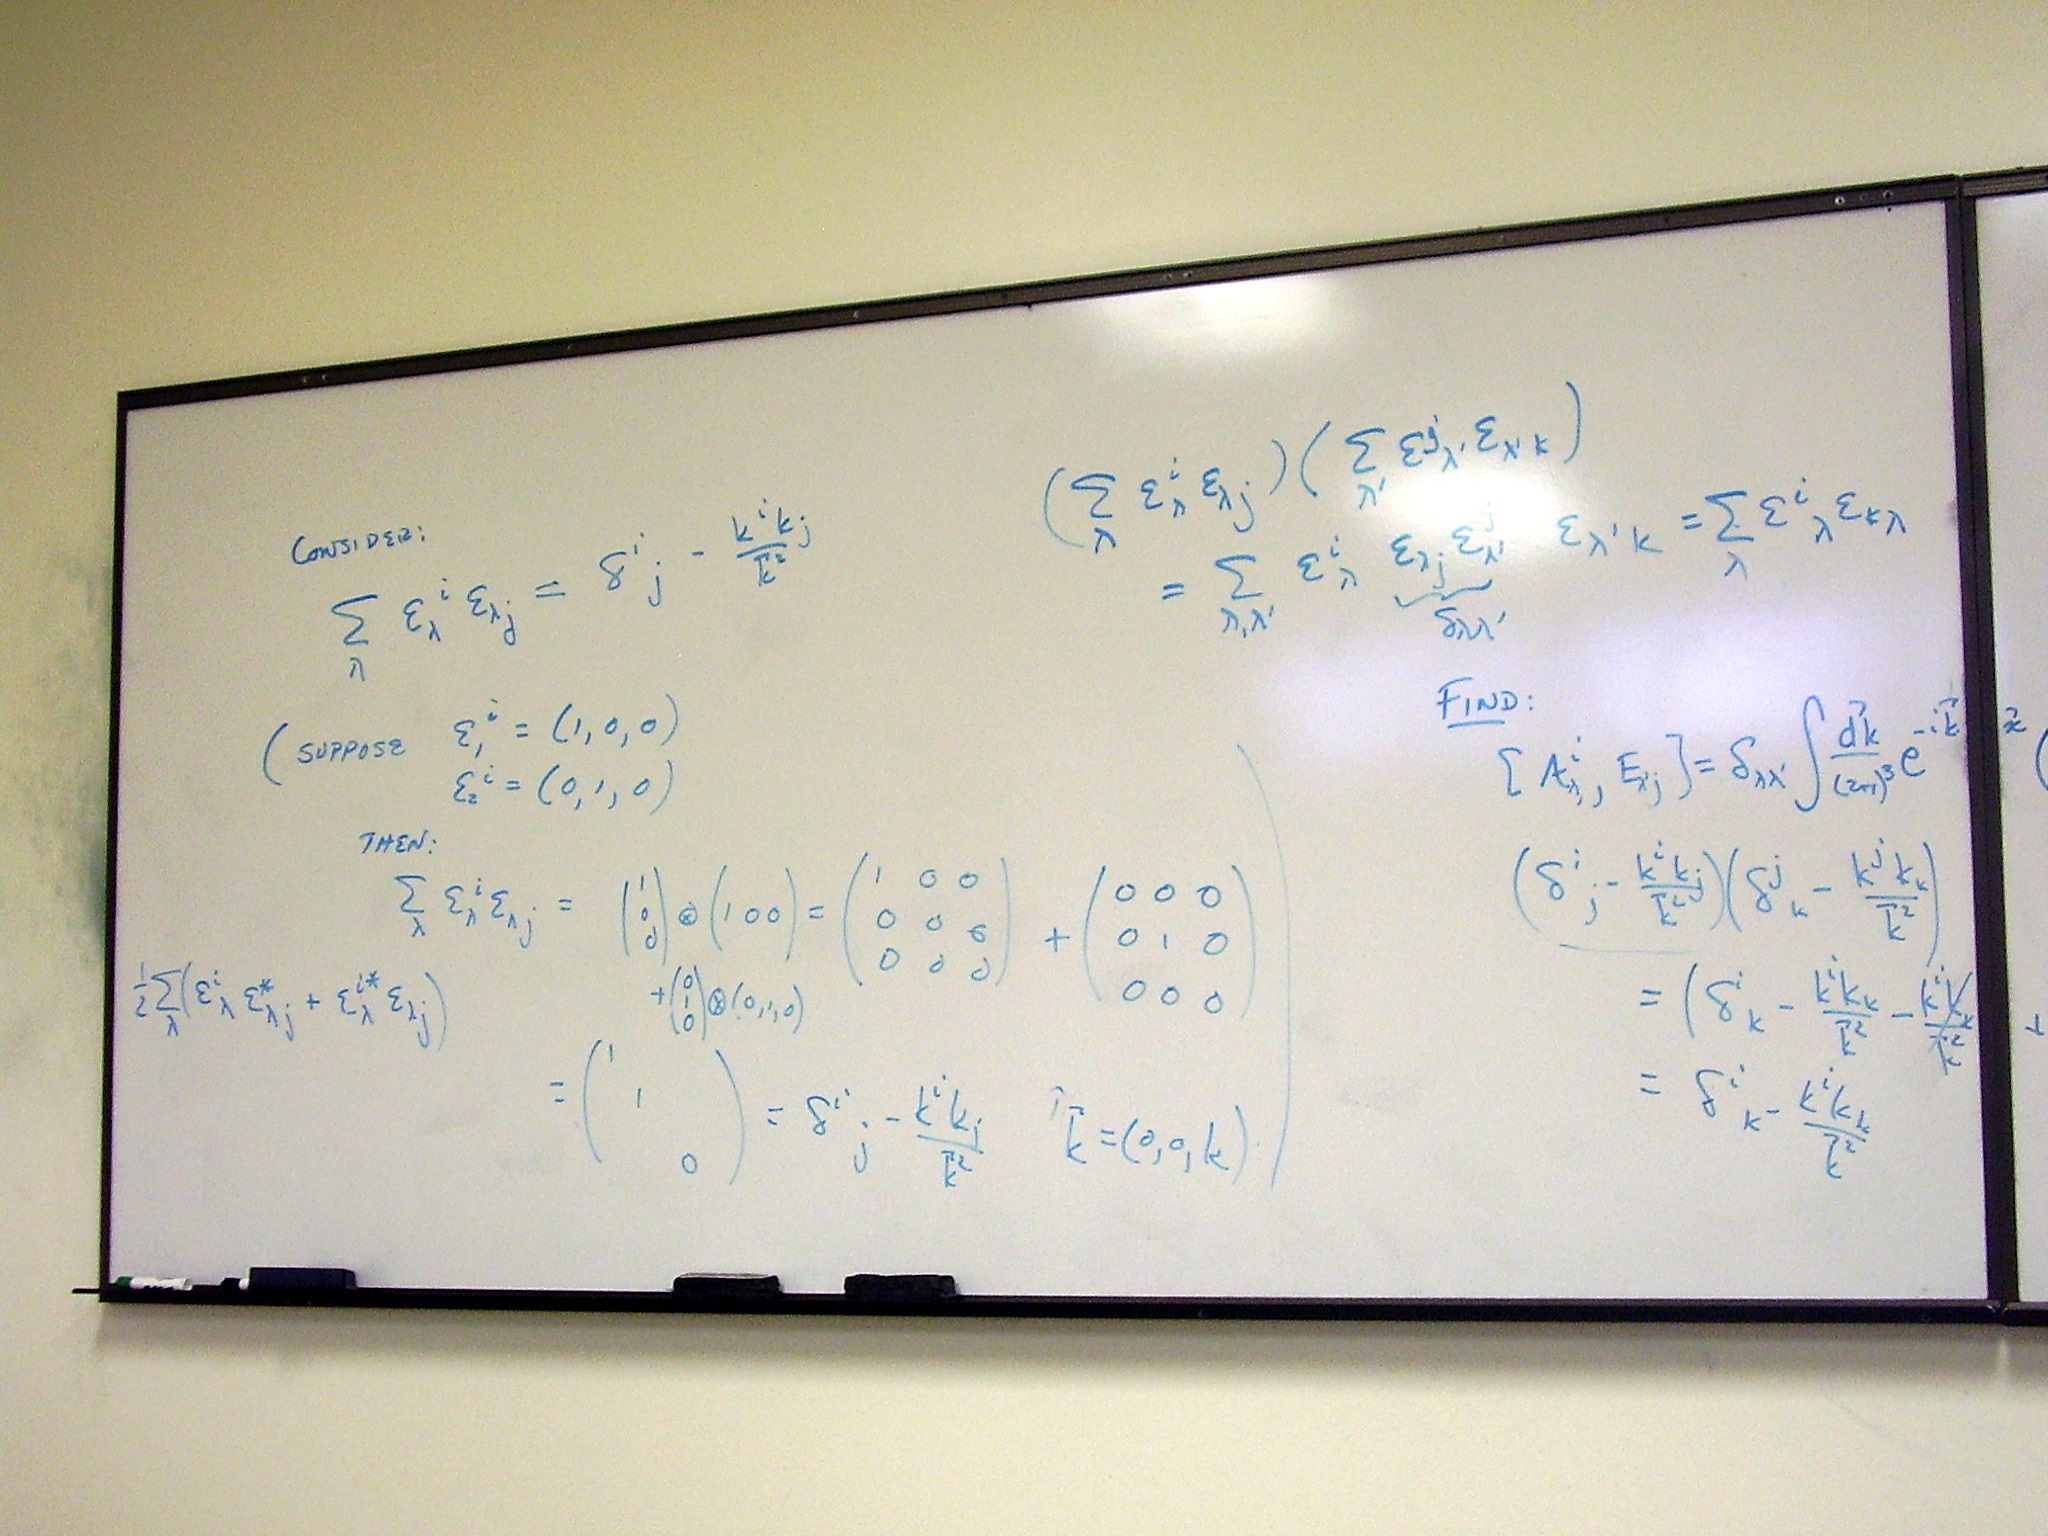 CONSIDER:
∑_λ ε_λ^i ε_{λj} = δ^i_j - k^i k_j / k⃗²
( SUPPOSE ε_1^i = (1,0,0)
ε_2^i = (0,1,0)
THEN:
∑_λ ε_λ^i ε_{λj} = (1 0 0) ⊗ (1 0 0) = (1 0 0; 0 0 0; 0 0 0) + (0 0 0; 0 1 0; 0 0 0)
+ (0 1 0) ⊗ (0,1,0)
½∑_λ(ε^i_λ ε*_{λj} + ε^{i*}_λ ε_{λj})
= (1 1 0) = δ^i_j - k^i k_j / k⃗² k⃗ = (0,0,k) )
(∑_λ ε^i_λ ε_{λj})(∑_λ' ε^j_λ' ε_{λ'k})
= ∑_{λ,λ'} ε^i_λ ε_{λj} ε^j_λ' ε_{λ'k} = ∑_λ ε^i_λ ε_{kλ}
δ_{λλ'}
FIND:
[A^i_λ, E_{λ'j}] = δ_{λλ'} ∫ dk⃗/(2π)³ e^{-ik⃗ x⃗} (
(δ^i_j - k^i k_j / k⃗²)(δ^j_k - k^j k_k / k⃗²)
= (δ^i_k - k^i k_k / k⃗² - k^i k_k / k⃗² +
= δ^i_k - k^i k_k / k⃗²